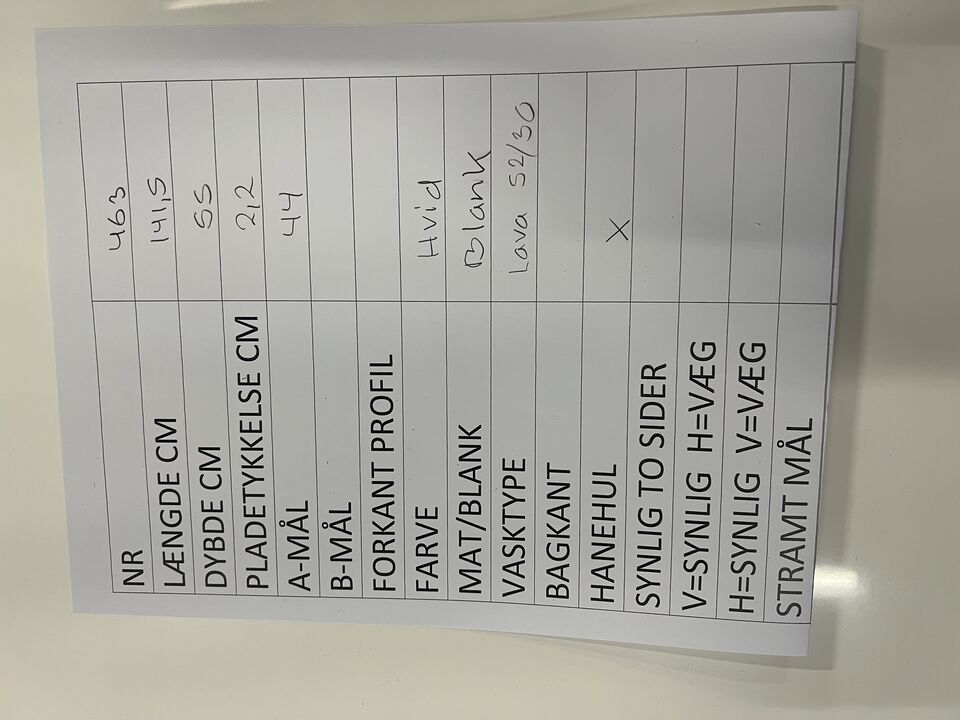 NR 463
LÆNGDE CM 141,5
DYBDE CM 55
PLADETYKKELSE CM 2,2
A-MÅL 44
B-MÅL
FORKANT PROFIL
FARVE Hvid
MAT/BLANK Blank
VASKTYPE Lava 52/30
BAGKANT
HANEHUL X
SYNLIG TO SIDER
V=SYNLIG H=VÆG
H=SYNLIG V=VÆG
STRAMT MÅL